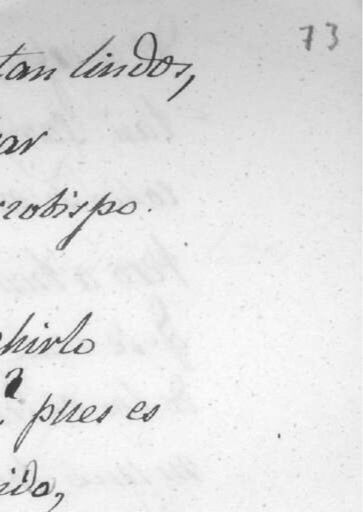 73
tan lindos,
ar
rzobispo.
hirlo
? pues es
ido,